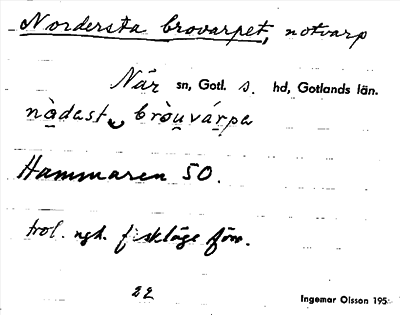 Nordersta brovarpet, notvarp
När sn, Gotl. s. hd, Gotlands län.
nàdast bròuvárpa
Hammaren 50.
trol. ngh. fiskläge förr.
22
Ingemar Olsson 195